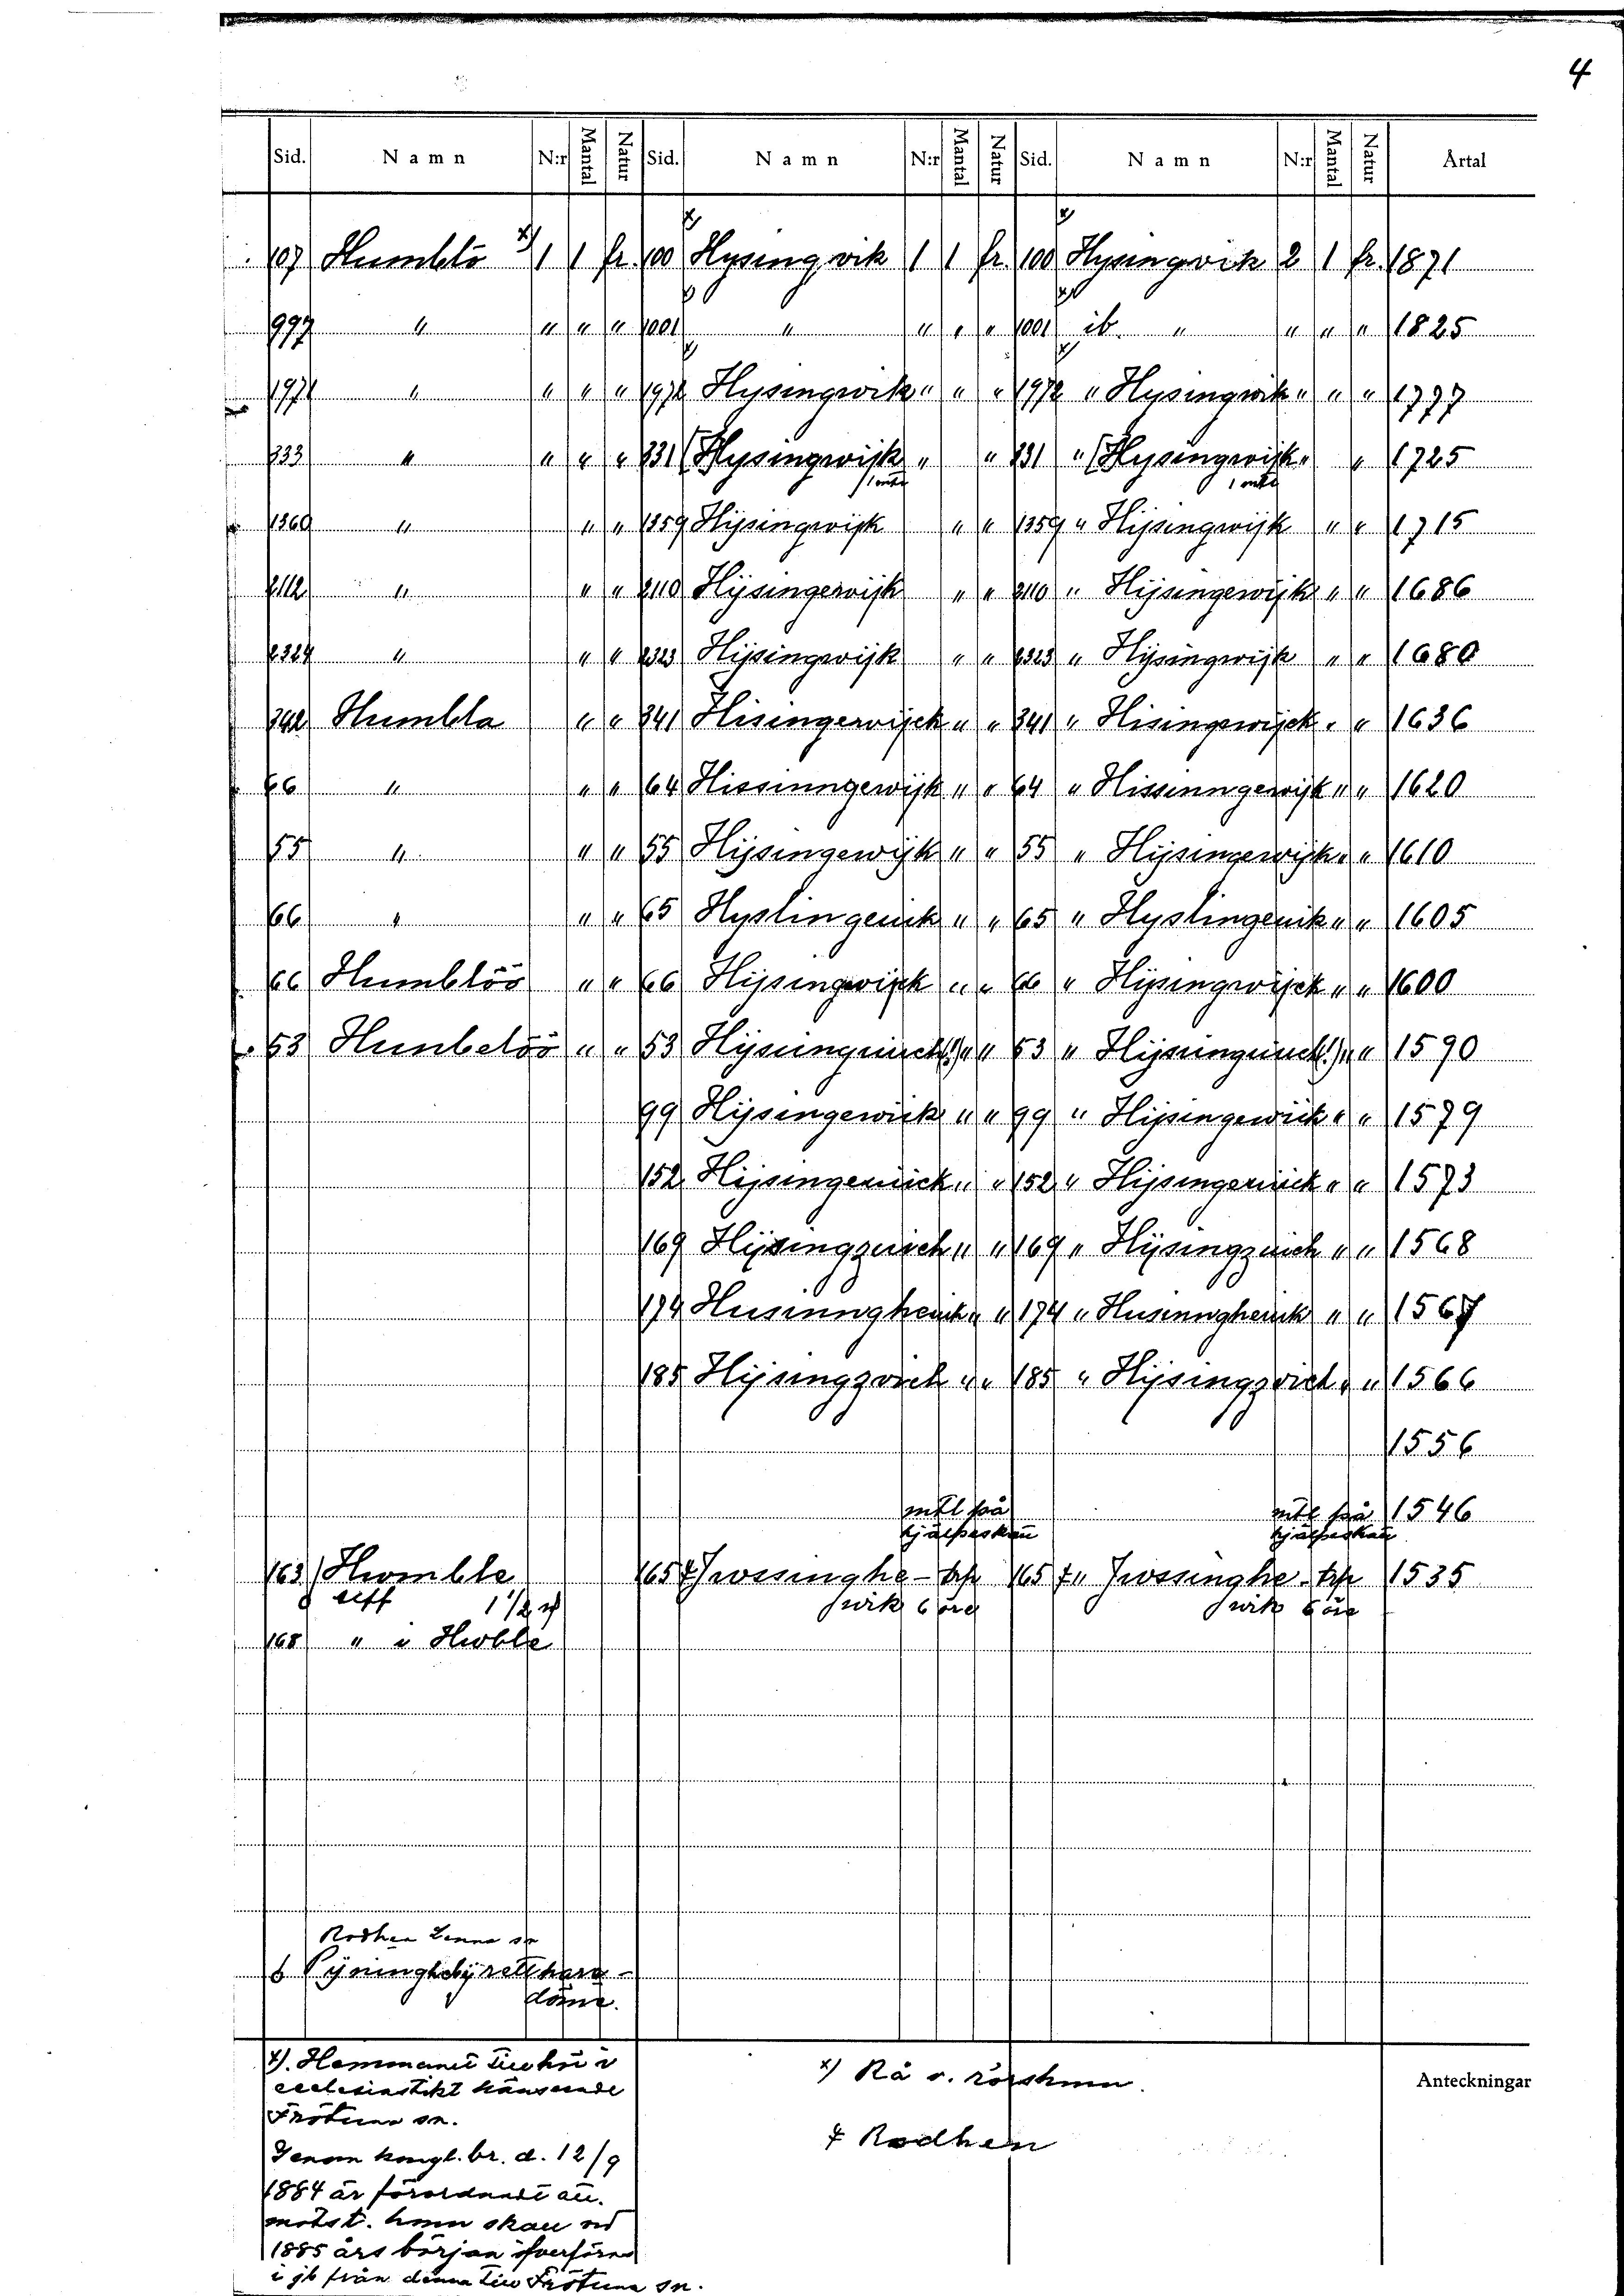 4
Sid. Namn N:r Mantal Natur Sid. Namn N:r Mantal Natur Sid. Namn N:r Mantal Natur Årtal
107 Humblö x) 1 1 fr. 100 Hysingvik 1 1 fr. 100 Hysingvik 2 1 fr. 1871
997 " " " " 1001 " " " " 1001 ib. " " " " 1825
1971 " " " " 1972 Hysingwik " " " 1972 " Hysingwik " " " 1777
333 " " " " 331 (Hysingwijk " " 331 " (Hysingwijk " " 1725
1 mtl 1 mtl
1360 " " " 1359 Hijsingwijk " " 1359 " Hijsingwijk " " 1715
2112 " " " 2110 Hijsingewijk " " 2110 " Hijsingewijk " " 1686
2324 " " " 2323 Hijsingwijk " " 2323 " Hijsingwijk " " 1680
342 Humbla " " 341 Hisingewijck " " 341 " Hisingewijck " " 1636
66 " " " 64 Hissinngewijk " " 64 " Hissinngewijk " " 1620
55 " " " 55 Hijsingewijk " " 55 " Hijsingewijk " " 1610
66 " " " 65 Hyslingeuik " " 65 " Hyslingeuik " " 1605
66 Humblöö " " 66 Hijsingwijck " " 66 " Hijsingwijck " " 1600
53 Hunbelöö " " 53 Hijsunguiuck(!) " " 53 " Hijsunguiuck(!) " " 1590
99 Hijsingewiik " " 99 " Hijsingewiik " " 1579
152 Hijsingeuiick " " 152 " Hijsingeuiick " " 1573
169 Hijsingzuich " " 169 " Hijsingzuich " " 1568
174 Husinngheuik " " 174 " Husinngheuik " " 1567
185 Hijsingzvich " " 185 " Hijsingzvich " " 1566
1556
mtl på mtl på 1546
hjälpeskatt hjälpeskatt
163 Hwmble 165 ‡ Jwssinghe- trp 165 ‡ " Jwssinghe- trp 1535
1 1/2 wik 6 öre wik 6 öre
168 " i Hwble
Rodhen Lenna sn
6 Pyninghebij rett hara-
döme.
x). Hemmanet tillhör i
ecclesiastikt hänseende
Frötuna sn.
Genom kongl. br. d. 12/9
1884 är förordnadt att
motst. hmn skall vid
1885 års början öfverföras
i jb från denna till Frötuna sn.
x) Rå o. rörshmn.
‡ Rodhen
Anteckningar